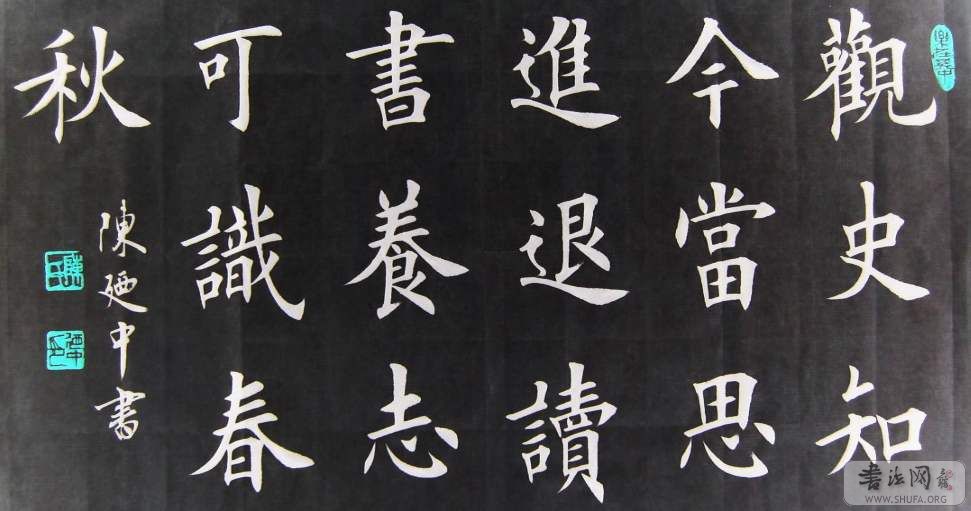 觀史知
今當思
進退讀
書養志
可識春
秋
陳廼中書
书法网
WWW.SHUFA.ORG